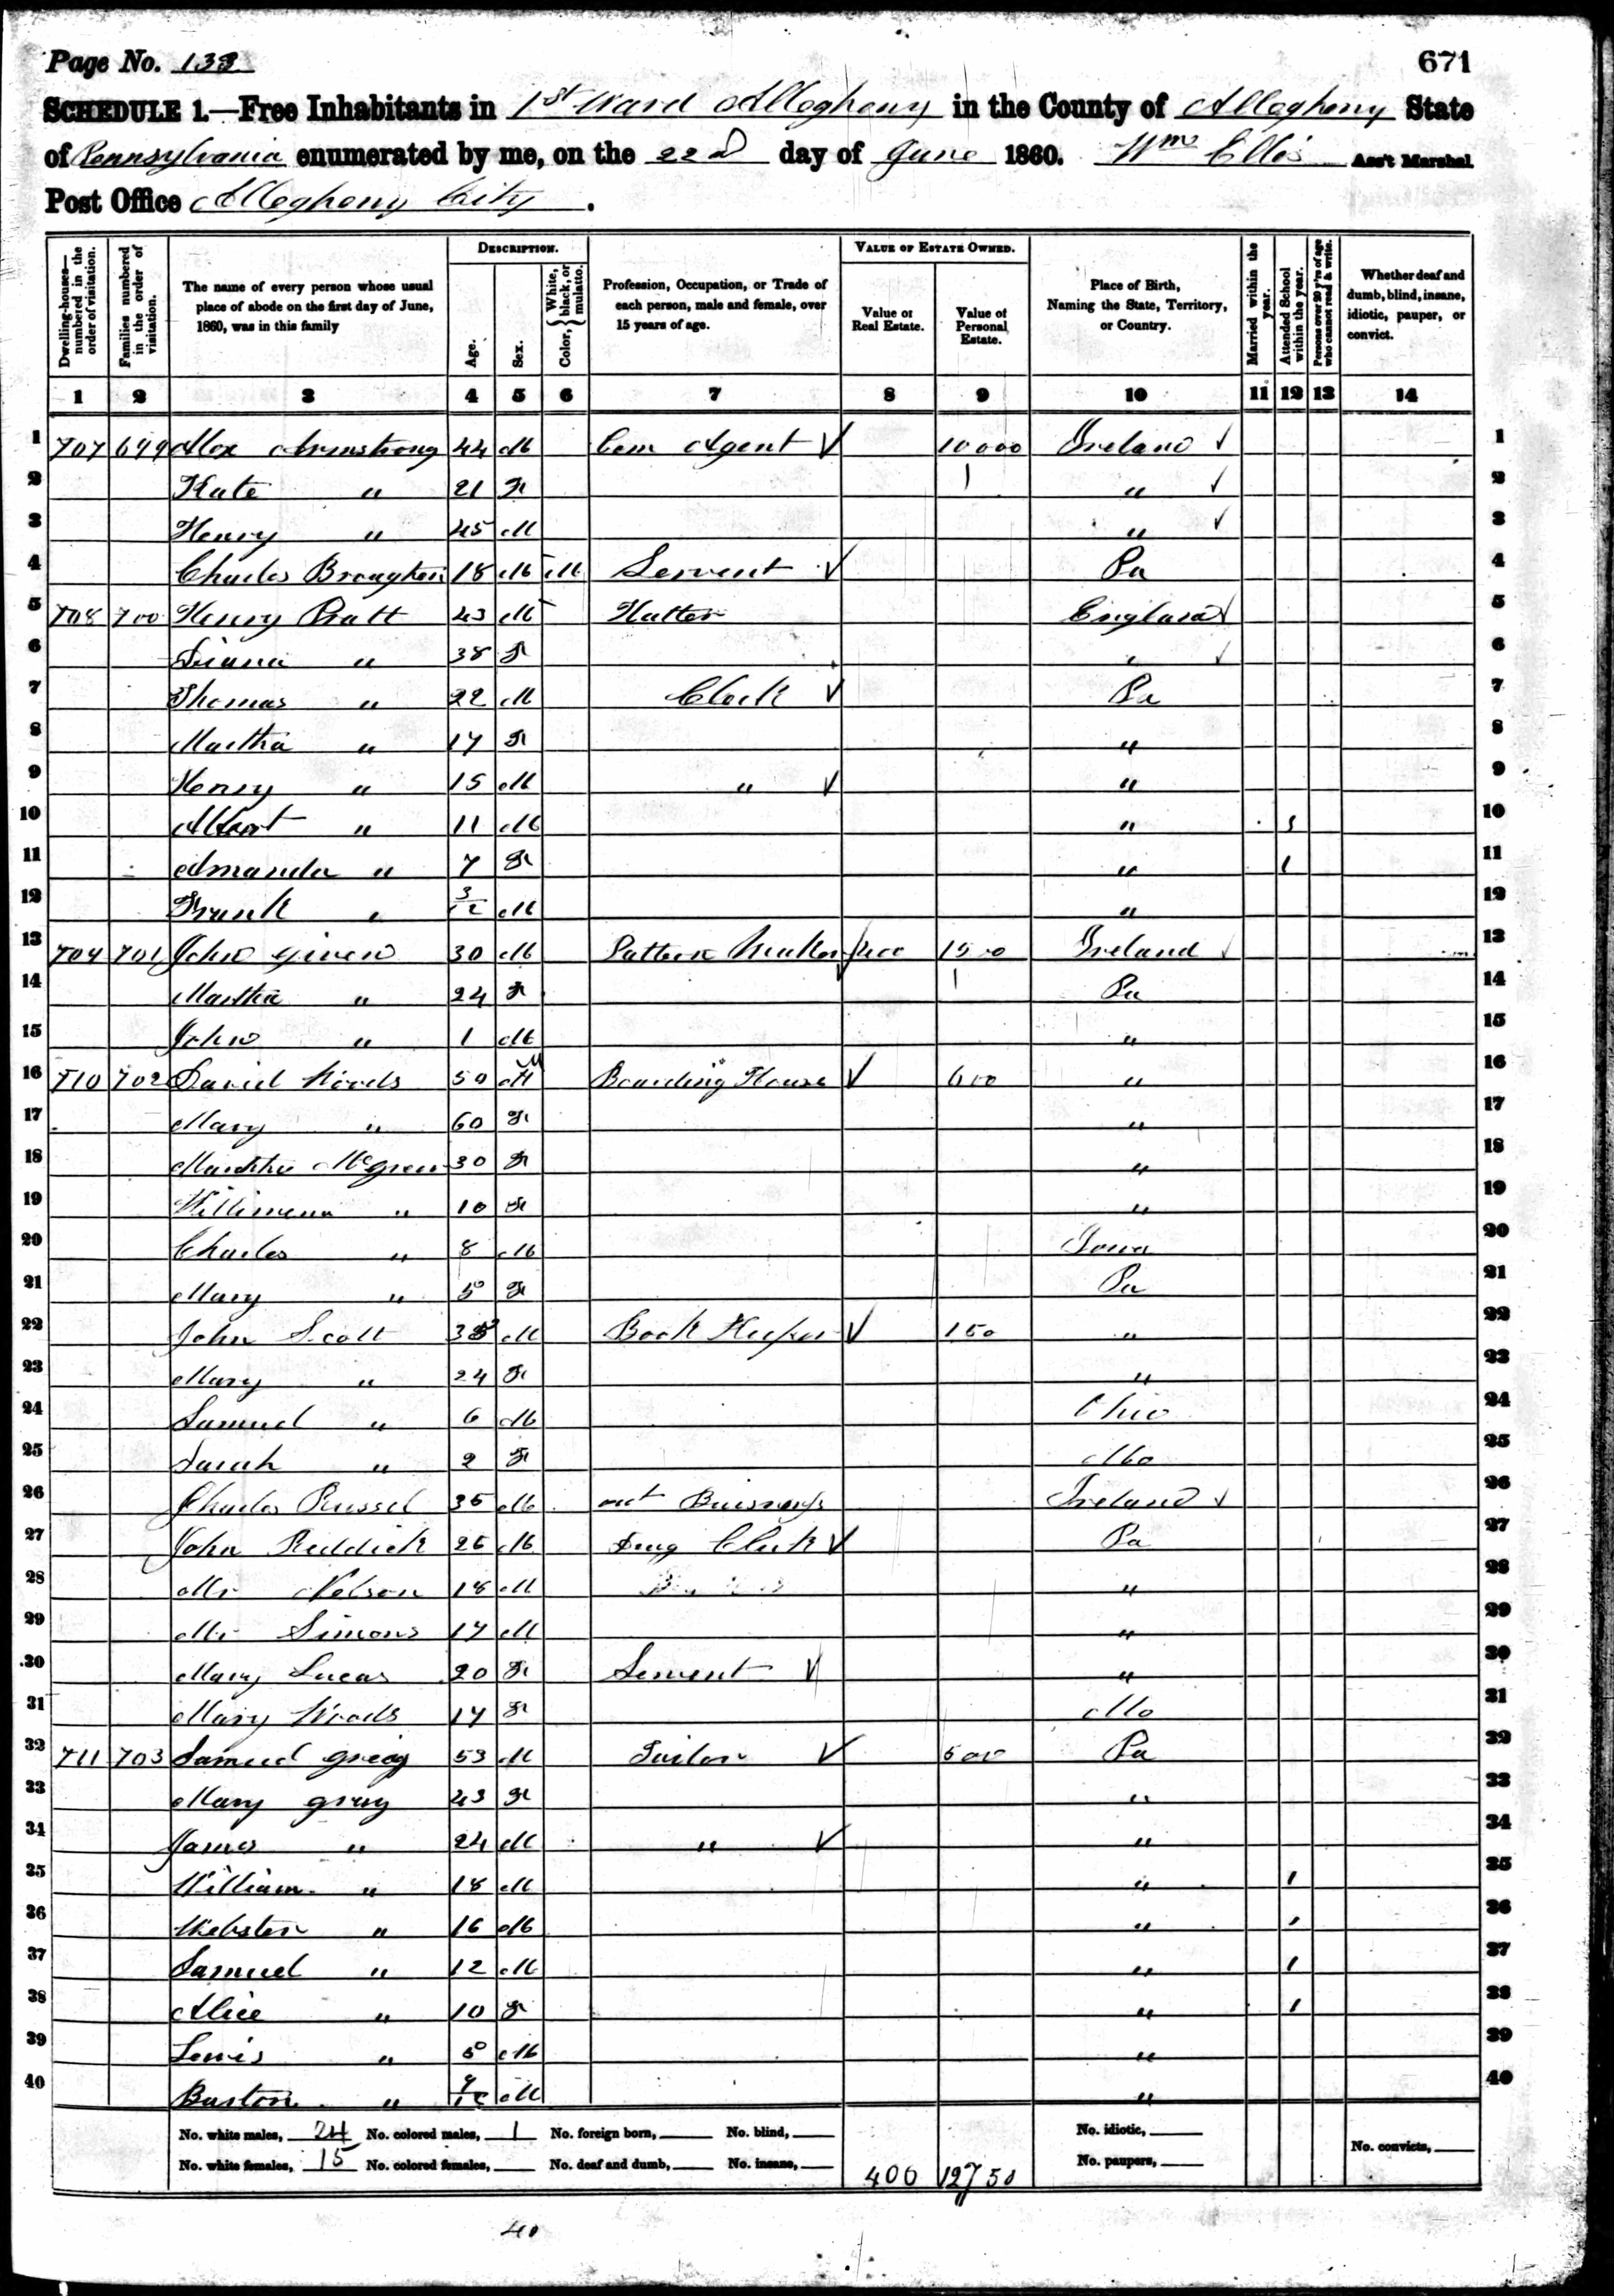 Page No. 133
671
SCHEDULE 1.—Free Inhabitants in 1st Ward Allegheny in the County of Allegheny State
of Pennsylvania enumerated by me, on the 22d day of June 1860. Wm Ellis Ass't Marshal
Post Office Allegheny City.
Dwelling-houses—numbered in the order of visitation.
Families numbered in the order of visitation.
The name of every person whose usual place of abode on the first day of June, 1860, was in this family
DESCRIPTION.
Age.
Sex.
Color, { White, black, or mulatto.
Profession, Occupation, or Trade of each person, male and female, over 15 years of age.
VALUE OF ESTATE OWNED.
Value of Real Estate.
Value of Personal Estate.
Place of Birth, Naming the State, Territory, or Country.
Married within the year.
Attended School within the year.
Persons over 20 y'rs of age who cannot read & write.
Whether deaf and dumb, blind, insane, idiotic, pauper, or convict.
1 2 3 4 5 6 7 8 9 10 11 12 13 14
1 707 699 Alex Armstrong 44 M Com Agent ✓ 10000 Ireland ✓ 1
2 Kate " 21 F 1 " ✓ 2
3 Henry " 45 M " ✓ 3
4 Charles Broughten 18 M M Servent ✓ Pa 4
5 708 700 Henry Pratt 43 M Hatter England ✓ 5
6 " 38 F " ✓ 6
7 Thomas " 22 M Clerk ✓ Pa 7
8 Martha " 17 F " 8
9 Henry " 15 M " ✓ " 9
10 Albert " 11 M " 1 10
11 Amanda " 7 F " 1 11
12 Frank " 3/12 M " 12
13 709 701 John Given 30 M Pattern Maker ✓ 400 1500 Ireland ✓ 13
14 Martha " 24 F 1 Pa 14
15 John " 1 M " 15
16 710 702 David Woods 50 M Boarding House ✓ 600 " 16
17 Mary " 60 F " 17
18 Martha 30 F " 18
19 " 10 F " 19
20 Charles " 8 M Iowa 20
21 Mary " 5 F Pa 21
22 John Scott M Book Keeper ✓ 150 " 22
23 Mary " 24 F " 23
24 Samuel " 6 M Ohio 24
25 Sarah " 2 F Mo 25
26 Charles Russel 35 M Ireland ✓ 26
27 John Reddick 25 M Drug Clerk ✓ Pa 27
28 Mr Nelson 18 M " 28
29 Mr Simons 17 M " 29
30 Mary Lucas 20 F Servent ✓ " 30
31 Mary Woods 17 F Mo 31
32 711 703 Samuel 53 M Tailor ✓ 500 Pa 32
33 Mary gray 43 F " 33
34 James " 24 M " ✓ " 34
35 William " 18 M " 1 35
36 Webster " 16 M " 1 36
37 Samuel " 12 M " 1 37
38 Alice " 10 F " 1 38
39 Lewis " 5 M " 39
40 " M " 40
No. white males, 24 No. colored males, 1 No. foreign born, No. blind, No. idiotic,
No. white females, 15 No. colored females, No. deaf and dumb, No. insane, 400 12750 No. paupers, No. convicts,
40